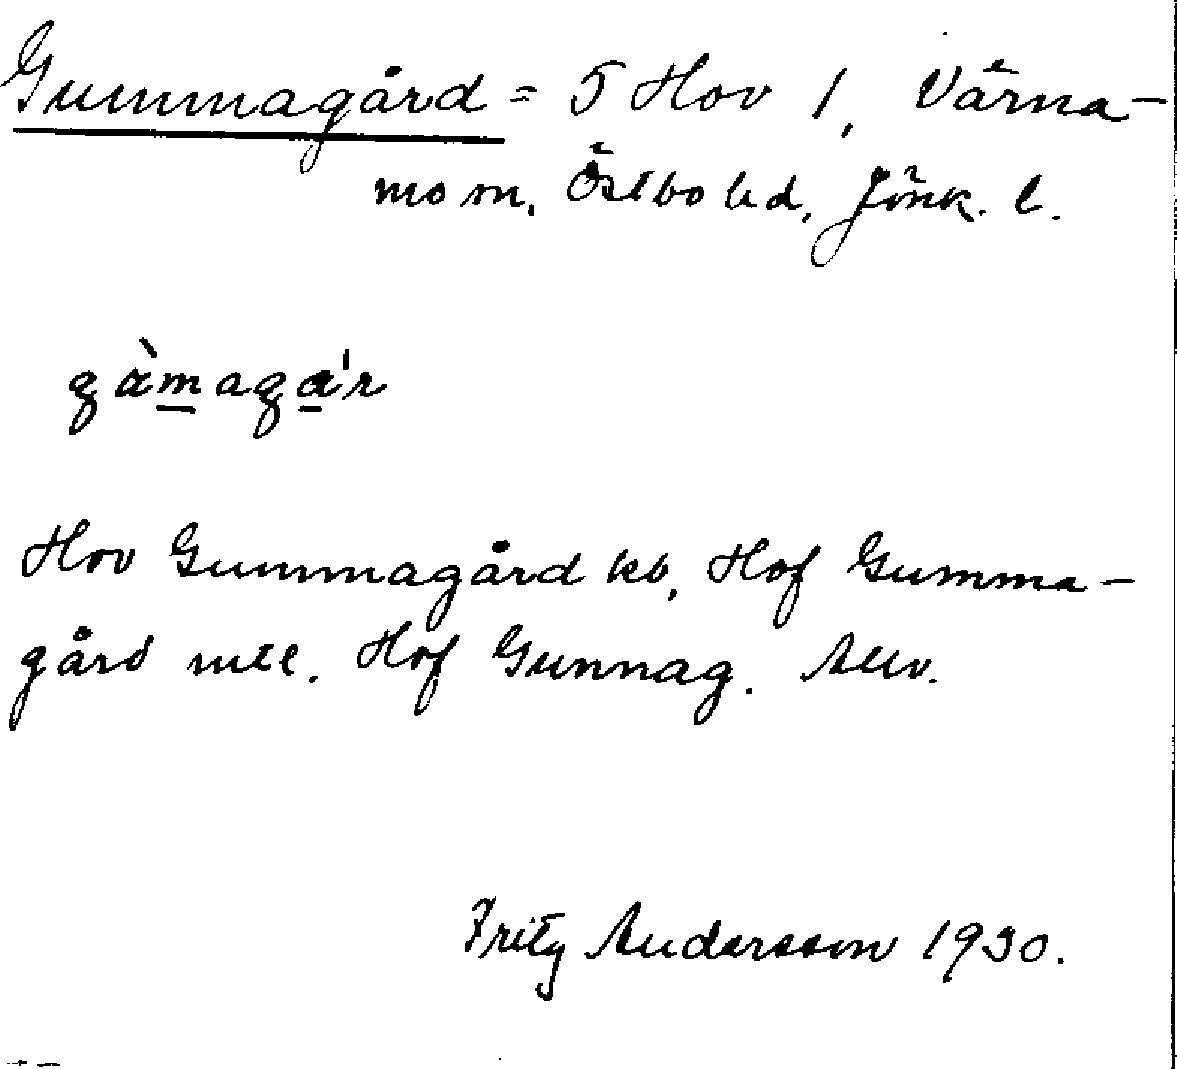 Gummagård = 5 Hov 1, Värna-
mo sn, Östbo hd, Jönk. l.
gàmagár
Hov Gummagård kb, Hof Gumma-
gård mtl. Hof Gunnag. Allv.
Fritz Andersson 1930.